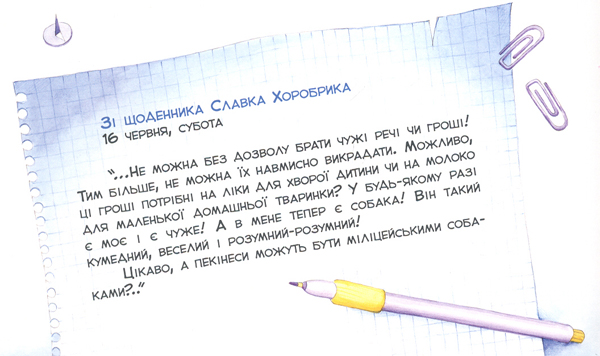 Зі щоденника Славка Хоробрика
16 червня, субота
"...Не можна без дозволу брати чужі речі чи гроші!
Тим більше, не можна їх навмисно викрадати. Можливо,
ці гроші потрібні на ліки для хворої дитини чи на молоко
для маленької домашньої тваринки? У будь-якому разі
є моє і є чуже! А в мене тепер є собака! Він такий
кумедний, веселий і розумний-розумний!
Цікаво, а пекінеси можуть бути міліцейськими соба-
ками?.."